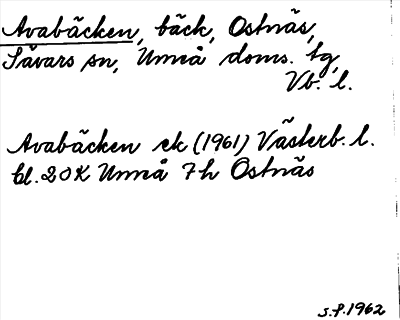 Avabäcken, bäck, Ostnäs,
Sävars sn, Umeå doms. tg,
Vb. l.
Avabäcken ek (1961) Västerb. l.
bl. 20K Umeå 7h Ostnäs
S.P. 1962